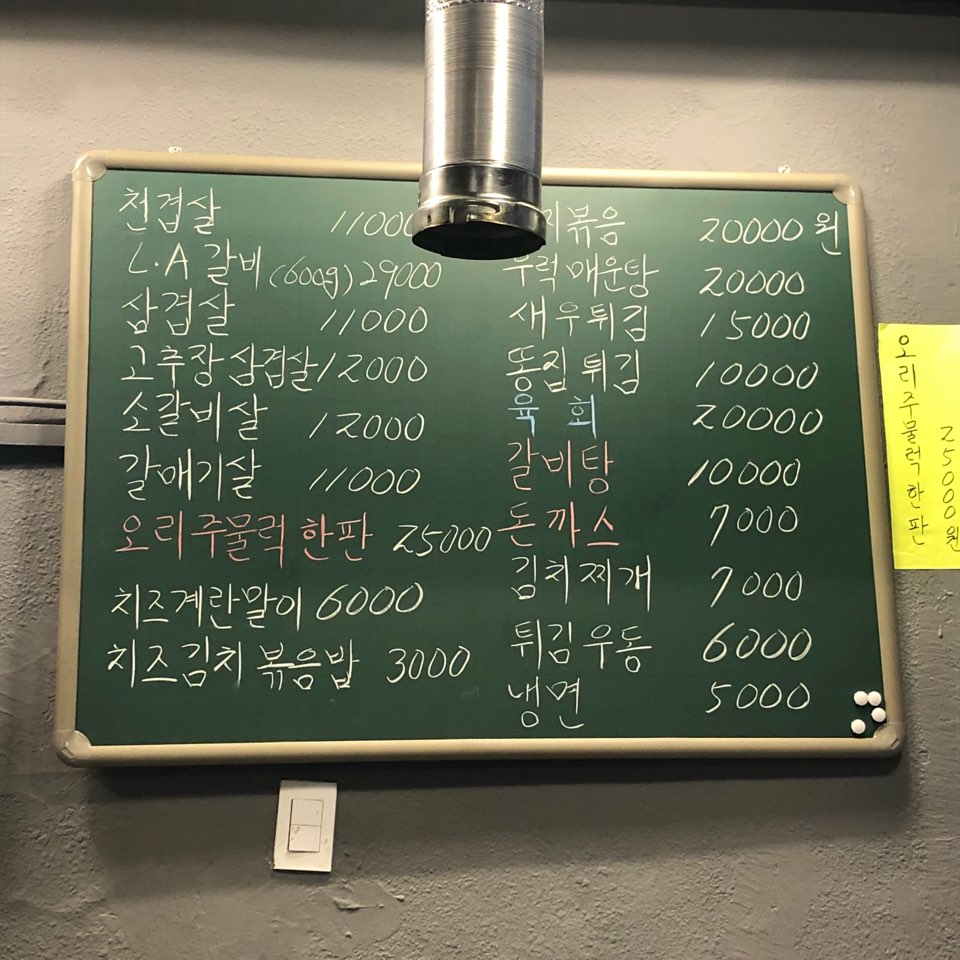 천겹살 11000
L.A 갈비 (600g) 29000
삼겹살 11000
고추장 삼겹살 12000
소갈비살 12000
갈매기살 11000
오리주물럭 한판 25000
치즈계란말이 6000
치즈김치 볶음밥 3000
볶음 20000원
우럭매운탕 20000
새우튀김 15000
똥집튀김 10000
육회 20000
갈비탕 10000
돈까스 7000
김치찌개 7000
튀김우동 6000
냉면 5000
오리주물럭한판
25000원